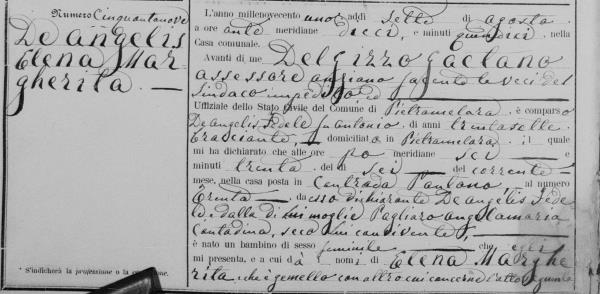 Numero Cinquantanove
De angelis
Elena Mar-
gherita. —
* S'indicherà la professione o la condizione.
L'anno millenovecento uno, addì sette di agosto
a ore ante meridiane dieci, e minuti quindici, nella
Casa comunale.
Avanti di me Delgizzo Gaetano
assessore anziano facente le veci del
Sindaco impedito
Uffiziale dello Stato Civile del Comune di Pietramelara, è comparso
De angelis Fedele fu Antonio, di anni trentasette
domiciliato in Pietramelara, il quale
mi ha dichiarato che alle ore po meridiane sei — e
minuti trenta, del dì sei — del corrente —
mese, nella casa posta in Contrada Pantano al numero
trenta —, da esso dichiarante De angelis Fede
le, e dalla di lui moglie Pagliaro angelamaria
Contadina, seco lui convivente,
è nato un bambino di sesso femminile — che egli
mi presenta, e a cui dà i nomi di Elena Marghe
rita, che è gemello con altro cui concerne l'atto seguente